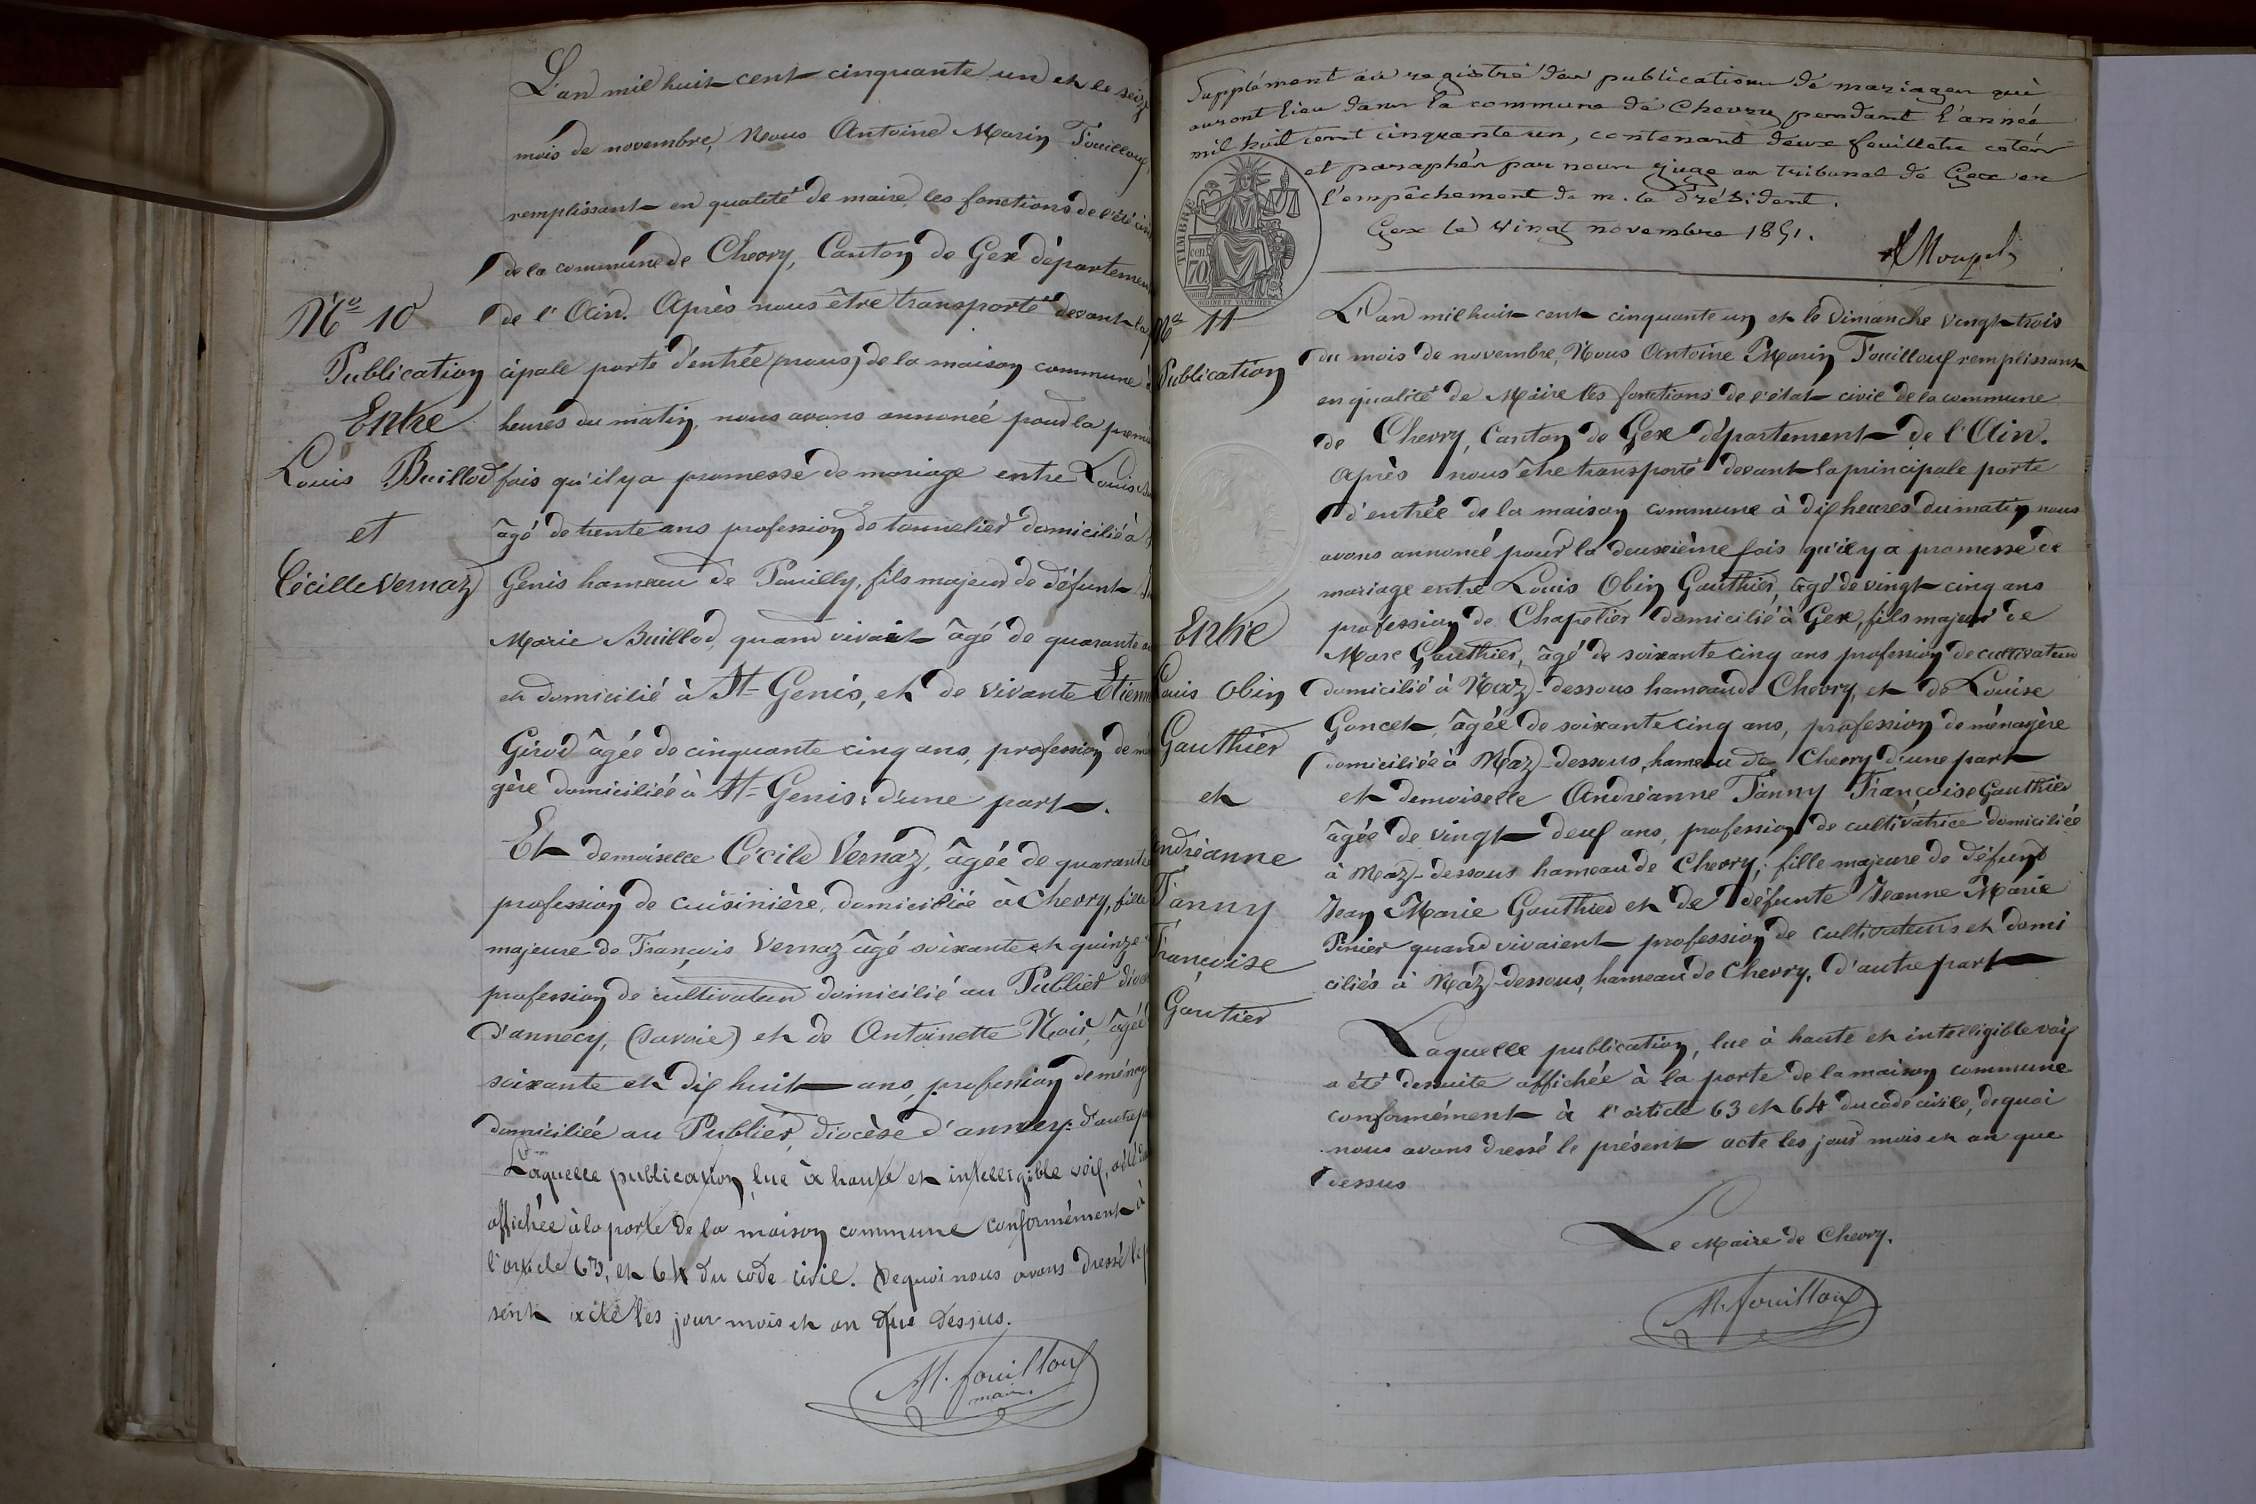 L'an mil huit cent cinquante un et le seize
mois de novembre, Nous Antoine Marin Fouilloux,
remplissant en qualité de maire les fonctions de l'état
de la commune de Chevry, Canton de Gex département
de l'Ain. Après nous être transporté devant la
Nº 10
Publication
Entre
Louis Buillod
et
Cécille Vernaz
cipale porte d'entrée (nous) de la maison commune
heures du matin, nous avons annoncé pour la premi
fois qu'il y a promesse de mariage entre Louis
âgé de trente ans profession de tonnelier domicilié à
Genis hameau de Pouilly, fils majeur de défunt
Marie Buillod, quand vivait âgé de quarante
et domicilié à St Genis, et de vivante Etienn
Girod âgée de cinquante cinq ans, profession de mé
gère domiciliée à St Genis; d'une part.
Et demoiselle Cécile Vernaz, âgée de quarante
profession de cuisinière, domiciliée à Chevry, fille
majeure de François Vernaz âgé soixante et quinze
profession de cultivateur domicilié au Publier dioc
d'annecy, (Savoie) et de Antoinette Noir, âgée
soixante et dix huit ans, profession de ménag
domiciliée au Publier, diocèse d'annecy: d'autre pa
Laquelle publication, lue à haute et intelligible voix, a été
affichée à la porte de la maison commune conformément à
l'article 63, et 64 du code civil. De quoi nous avons dressé le p
sent acte les jour mois et an que dessus.
M. fouilloux
maire
Supplément au registre des publications de mariages qui
auront lieu dans la commune de Chevry pendant l'année
mil huit cent cinquante un, contenant deux feuillets cotés
et paraphés par nous juge au tribunal de Gex en
l'empêchement de m. le Président.
Gex le vingt novembre 1851.
TIMBRE
70
Nº 11
Publication
Entre
Louis Obin
Gauthier
et
Andréanne
Fanny
Françoise
Gautier
L'an mil huit cent cinquante un et le Dimanche vingt-trois
du mois de novembre, Nous Antoine Marin Fouilloux remplissant
en qualité de Maire les fonctions de l'état civil de la commune
de Chevry, Canton de Gex département de l'Ain.
Après nous être transporté devant la principale porte
d'entrée de la maison commune à dix heures du matin nous
avons annoncé pour la deuxième fois qu'il y a promesse de
mariage entre Louis Obin Gauthier, âgé de vingt cinq ans
profession de Chapelier domicilié à Gex, fils majeur de
Marc Gauthier, âgé de soixante cinq ans profession de cultivateur
domicilié à Naz-dessous hameau de Chevry, et de Louise
Goncet, âgée de soixante cinq ans, profession de ménagère
domiciliée à Naz-dessous, hameau de Chevry d'une part
et demoiselle Andréanne Fanny Françoise Gauthier
âgée de vingt deux ans, profession de cultivatrice domiciliée
à Naz-dessous hameau de Chevry; fille majeure de défunt
Jean Marie Gauthier et de défunte Jeanne Marie
Pinier quand vivaient profession de cultivateurs et domi
ciliés à Naz-dessous, hameau de Chevry, d'autre part
Laquelle publication, lue à haute et intelligible voix
a été desuite affichée à la porte de la maison commune
conformément à l'article 63 et 64 du code civile, de quoi
nous avons dressé le présent acte les jour mois et an que
dessus
Le Maire de Chevry.
M. fouilloux